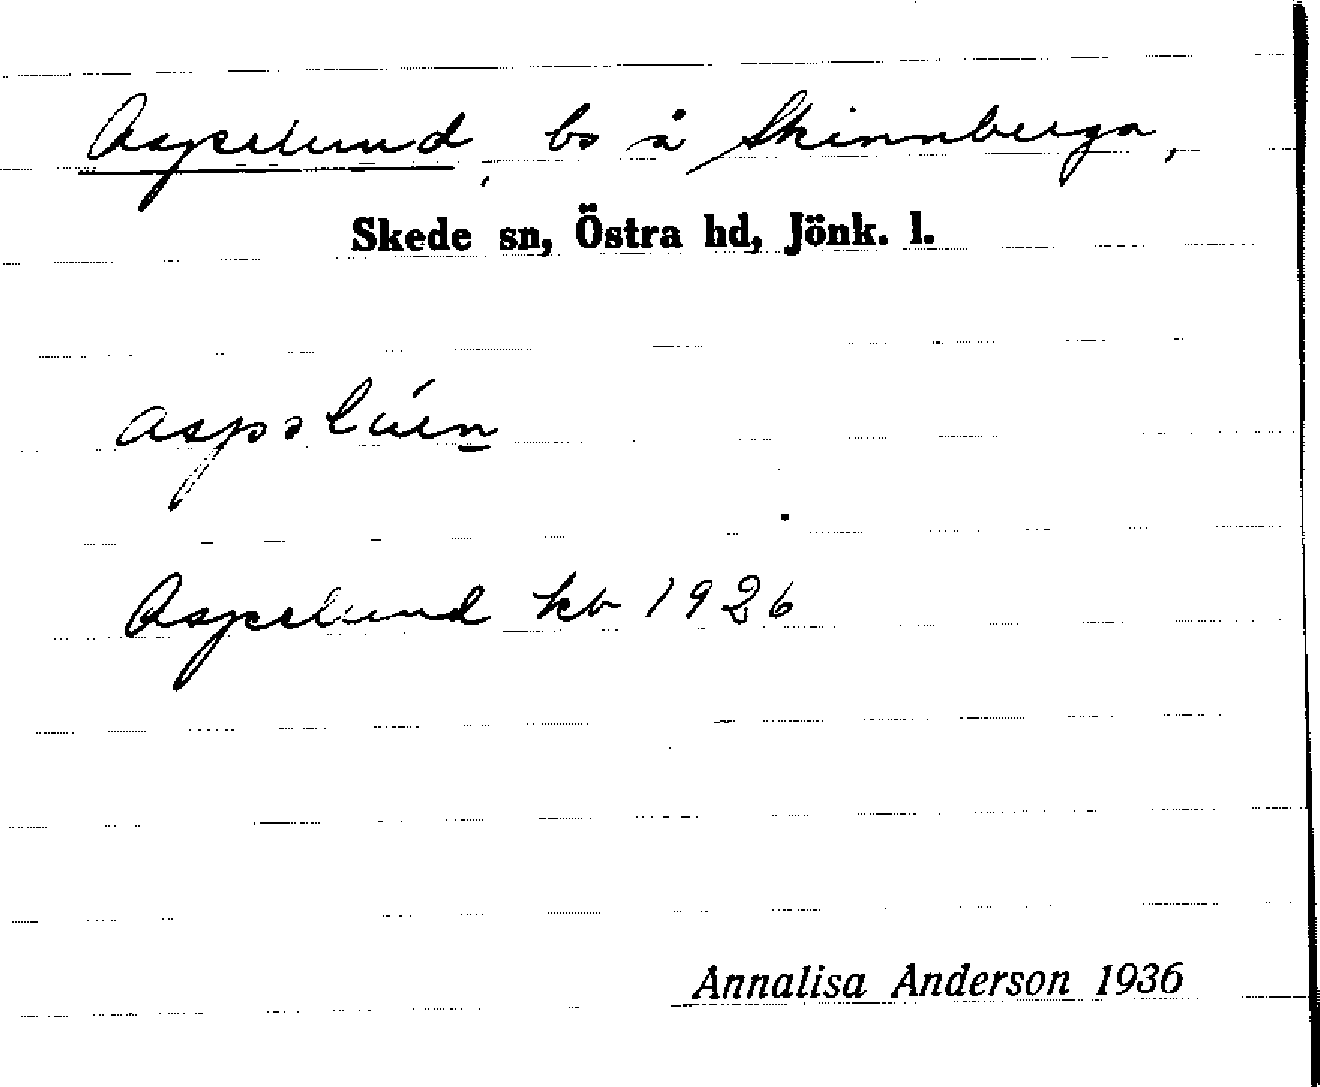 Aspelund, bs å Skinnberga,
Skede sn, Östra hd, Jönk. l.
Aspelund kb 1926
Annalisa Anderson 1936